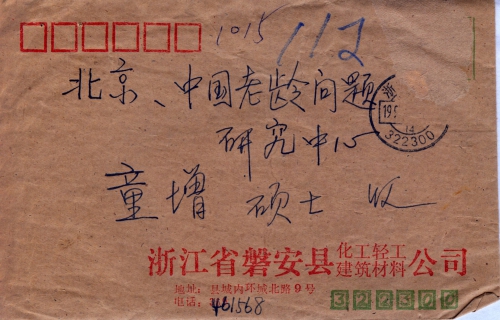 1015 112
北京、中国老龄问题
研究中心
童增 硕士 收
浙
19
14
322300
浙江省磐安县化工轻工建筑材料公司
地址：县城内环城北路9号
电话：461568
322300